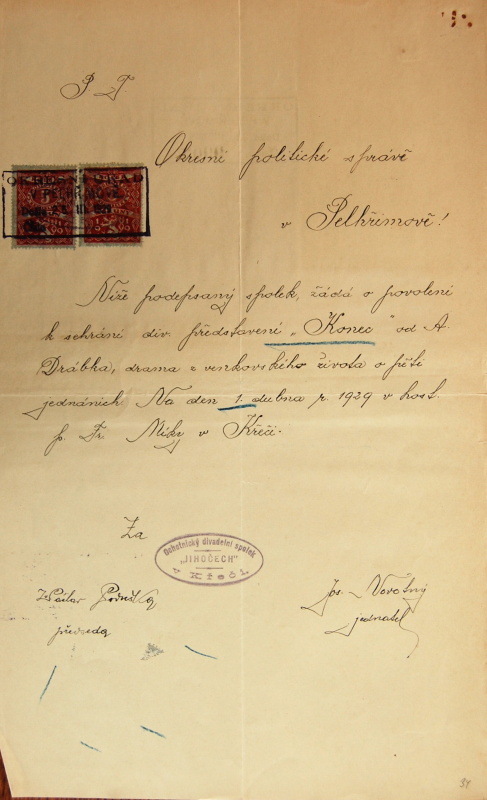 P. T.
Okresní politické správě
v Pelhřimově!
OKRES
V PELHŘIMOVĚ
1929
Níže podepsaný spolek, žádá o povolení
k sehrání div. představení „Konec" od A.
Drábka, drama z venkovského života o pěti
jednáních Na den 1. dubna r. 1929 v host.
p. Fr. Miky v Křeči.
Za
Ochotnický divadelní spolek
„JIHOČECH"
v Křeči.
Jos. Novotný
jednatel
předseda
34